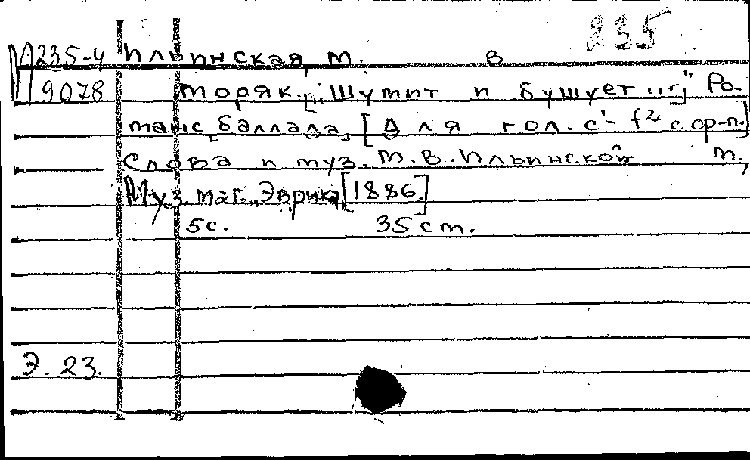 235
М 235-4 Ильинская, М. В
9078 Моряк. [„Шумит и бушует..."] Ро-
манс, баллада, [Для гол. c¹- f² с ф-п.]
Слова и муз. М. В. Ильинской М.,
Муз. маг. „Эврика" [1886.]
5с. 35 см.
Э. 23.